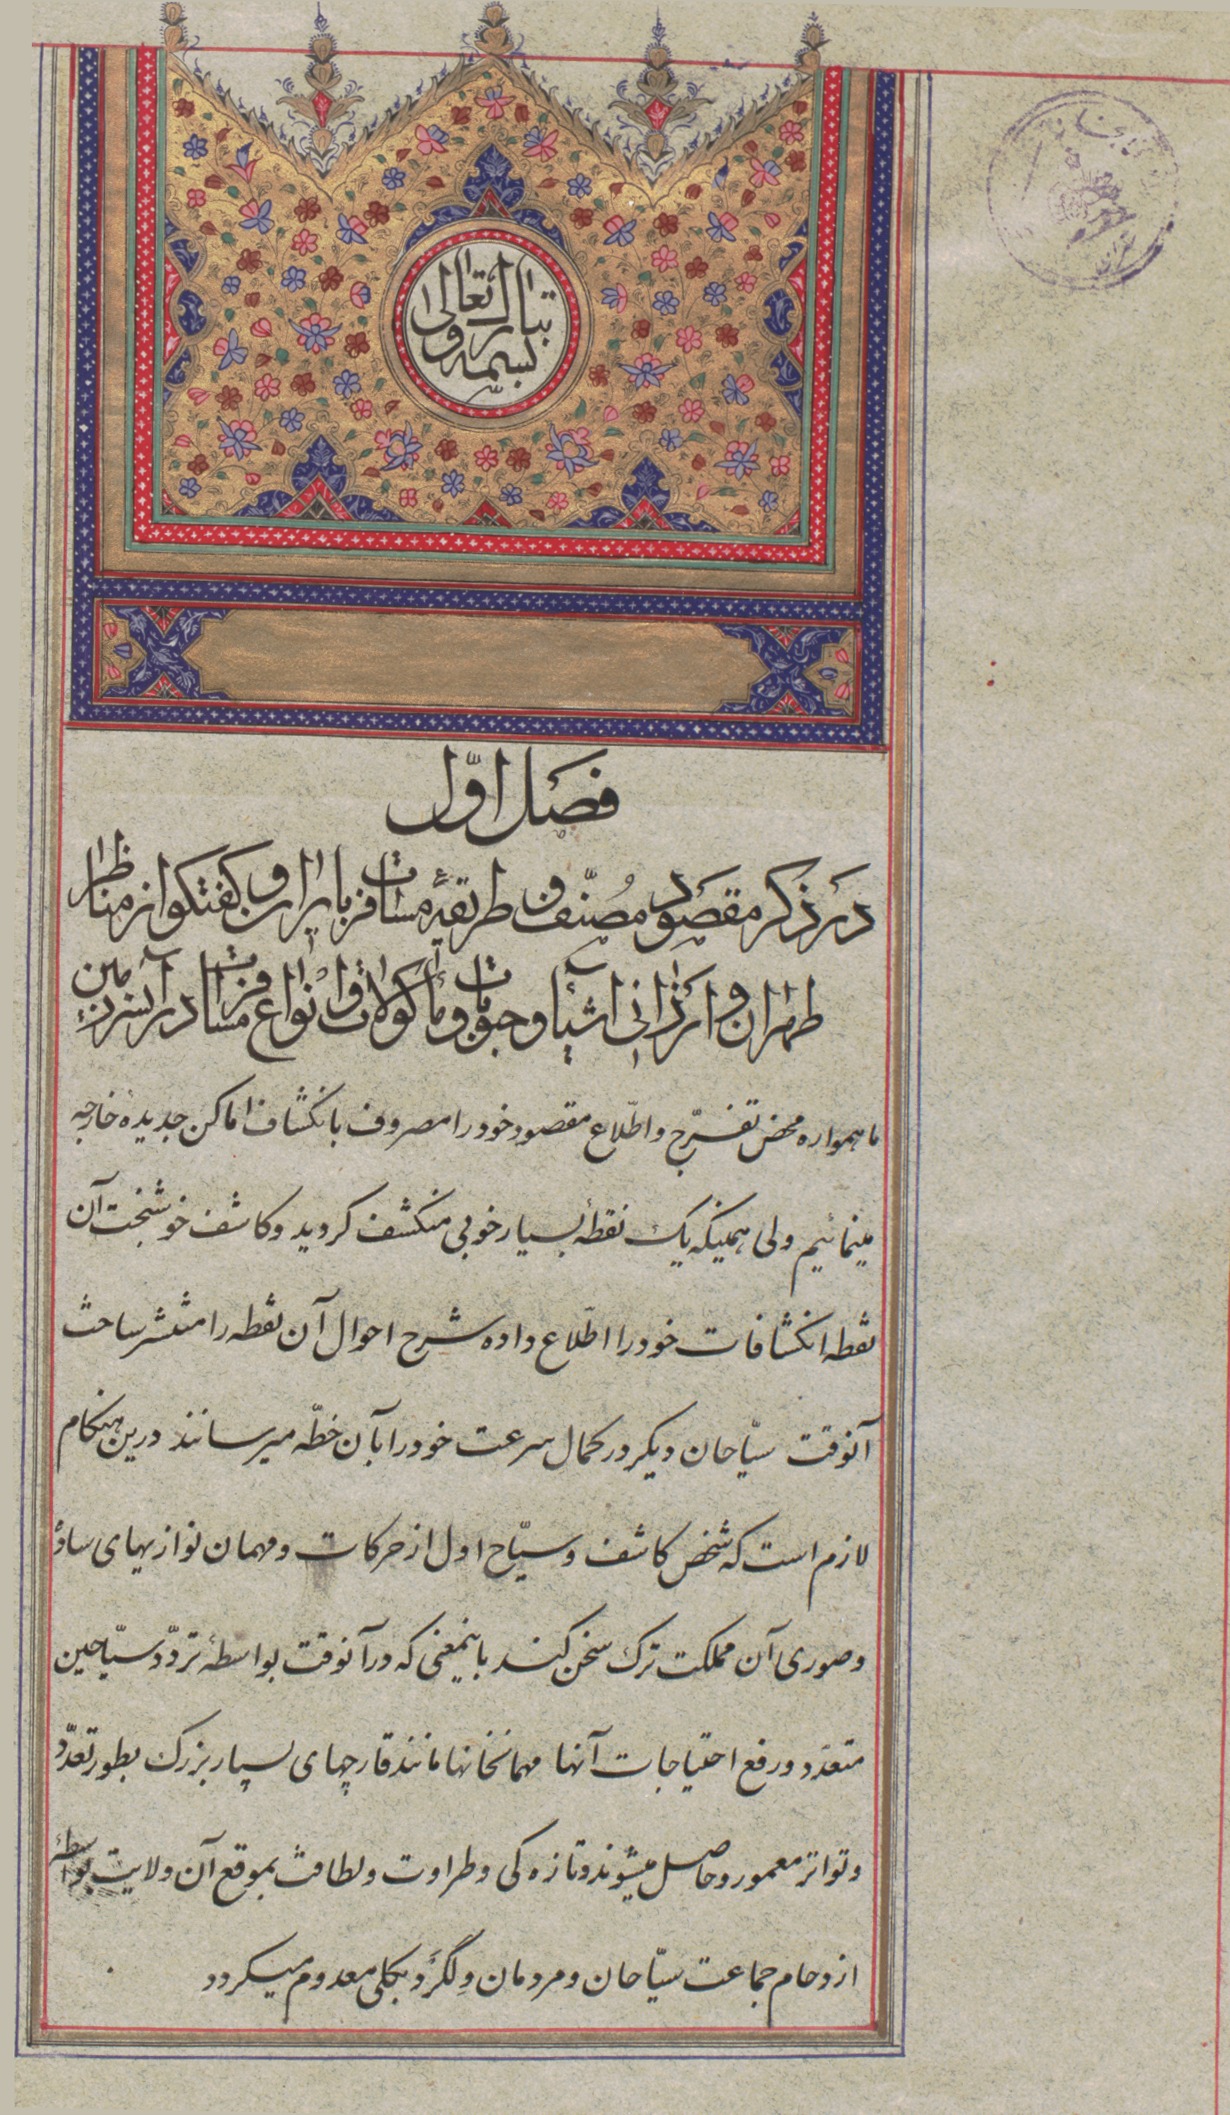 بسمه تبارک و تعالی
فصل اوّل
در ذکر مقصود مصنّف و طریقهٔ مسافرت بایران و کفتکو از مناظر
طهران و ارزانی اشیآء و حبوبات و مأکولات و انواع مسافرت در آنسرزمین
ما همواره محض تفرّج و اطّلاع مقصود خود را مصروف بانکشاف اماکن جدیدهٔ خارجه
مینمائیم ولی همینکه یک نقطهٔ بسیار خوبی منکشف کردید و کاشف خوشبخت آن
نقطه انکشافات خود را اطّلاع داده شرح احوال آن نقطه را منتشر ساخت
آنوقت سیّاحان دیکر در کمال سرعت خود را بآن خطّه میرسانند درین هنکام
لازم است که شخص کاشف و سیّاح اول از حرکات و مهمان نوازیهای ساده
و صوری آن مملکت ترک سخن کند باینمعنی که در آنوقت بواسطهٔ تردّد سیّاحین
متعدّد و رفع احتیاجات آنها مهمانخانها مانند قارچهای بسیار بزرک بطور تعدّد
و تواتر معمور و حاصل میشوند و تازه کی و طراوت و لطافت بموقع آن ولایت بواسطهٔ
ازدحام جماعت سیّاحان و مردمان ولگرد بکلی معدوم میکردد